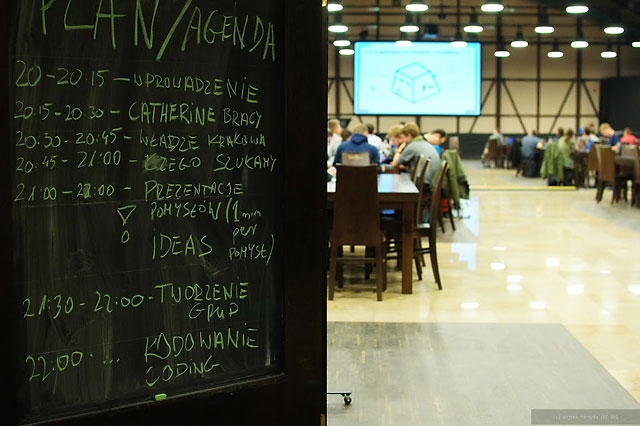 PLAN/AGENDA
20-20:15 - WPROWADZENIE
20:15-20:30 - CATHERINE BRACY
20:30-20:45 - WŁADZE KRAKOWA
20:45-21:00 - CZEGO SZUKAMY
21:00-22:00 - PREZENTACJE
POMYSŁÓW (1 min
per
IDEAS POMYSŁ)
21:30-22:00 - TWORZENIE
GRUP
22:00 ... KODOWANIE
CODING